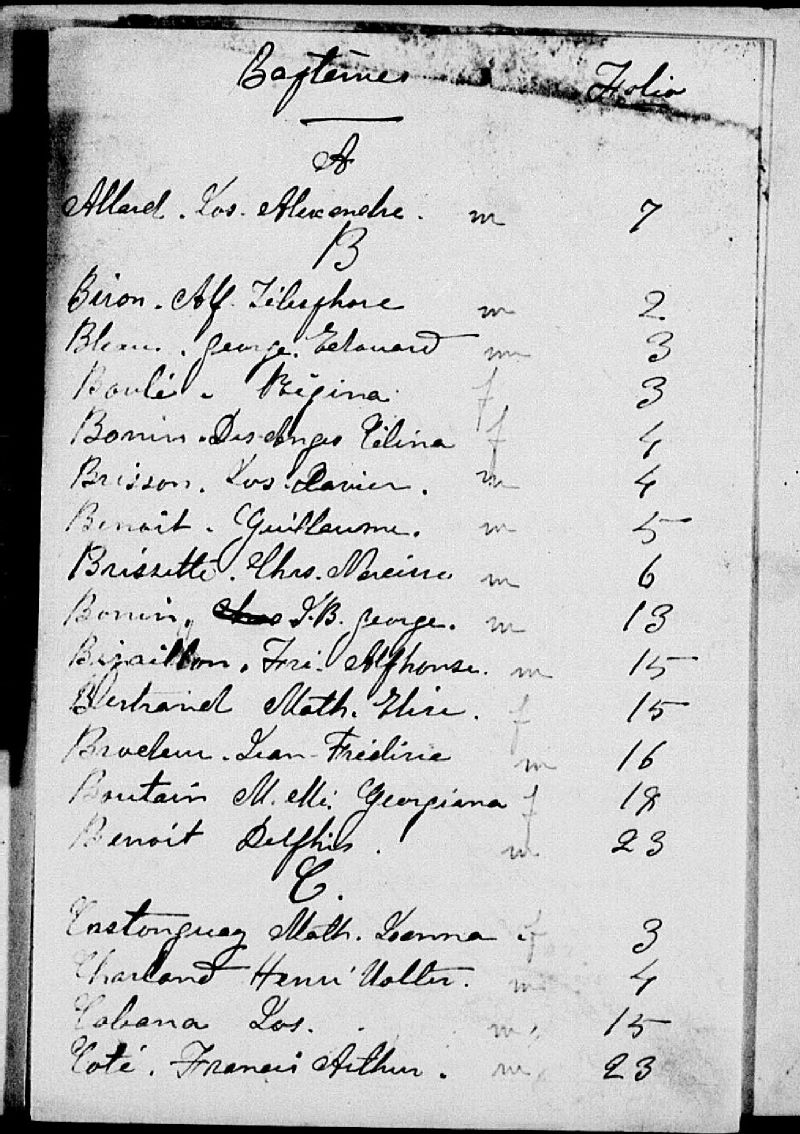 Baptêmes Folio
A
Allard. Jos. Alexandre. m 7
B
Biron. Alf. Télesphore m 2
Bleau. George. Edouard m 3
Boulé. Régina f 3
Bonin. Des Anges Célina f 4
Brisson. Jos. Xavier. m 4
Benoit. Guillaume. m 5
Brissette. Chrs. Narcisse m 6
Bonin, J.B. George. m 13
Bisaillon. Frs. Alphonse. m 15
Bertrand Math. Elise. f 15
Brodeur. Jean-Frédéric m 16
Boutain M. Georgiana f 18
Benoit Delphis. m 23
C.
Castonguay Math. Joanna f 3
Charland Henri Walter. m 4
Cabana Jos. m 15
Coté. Francis Arthur. m 23